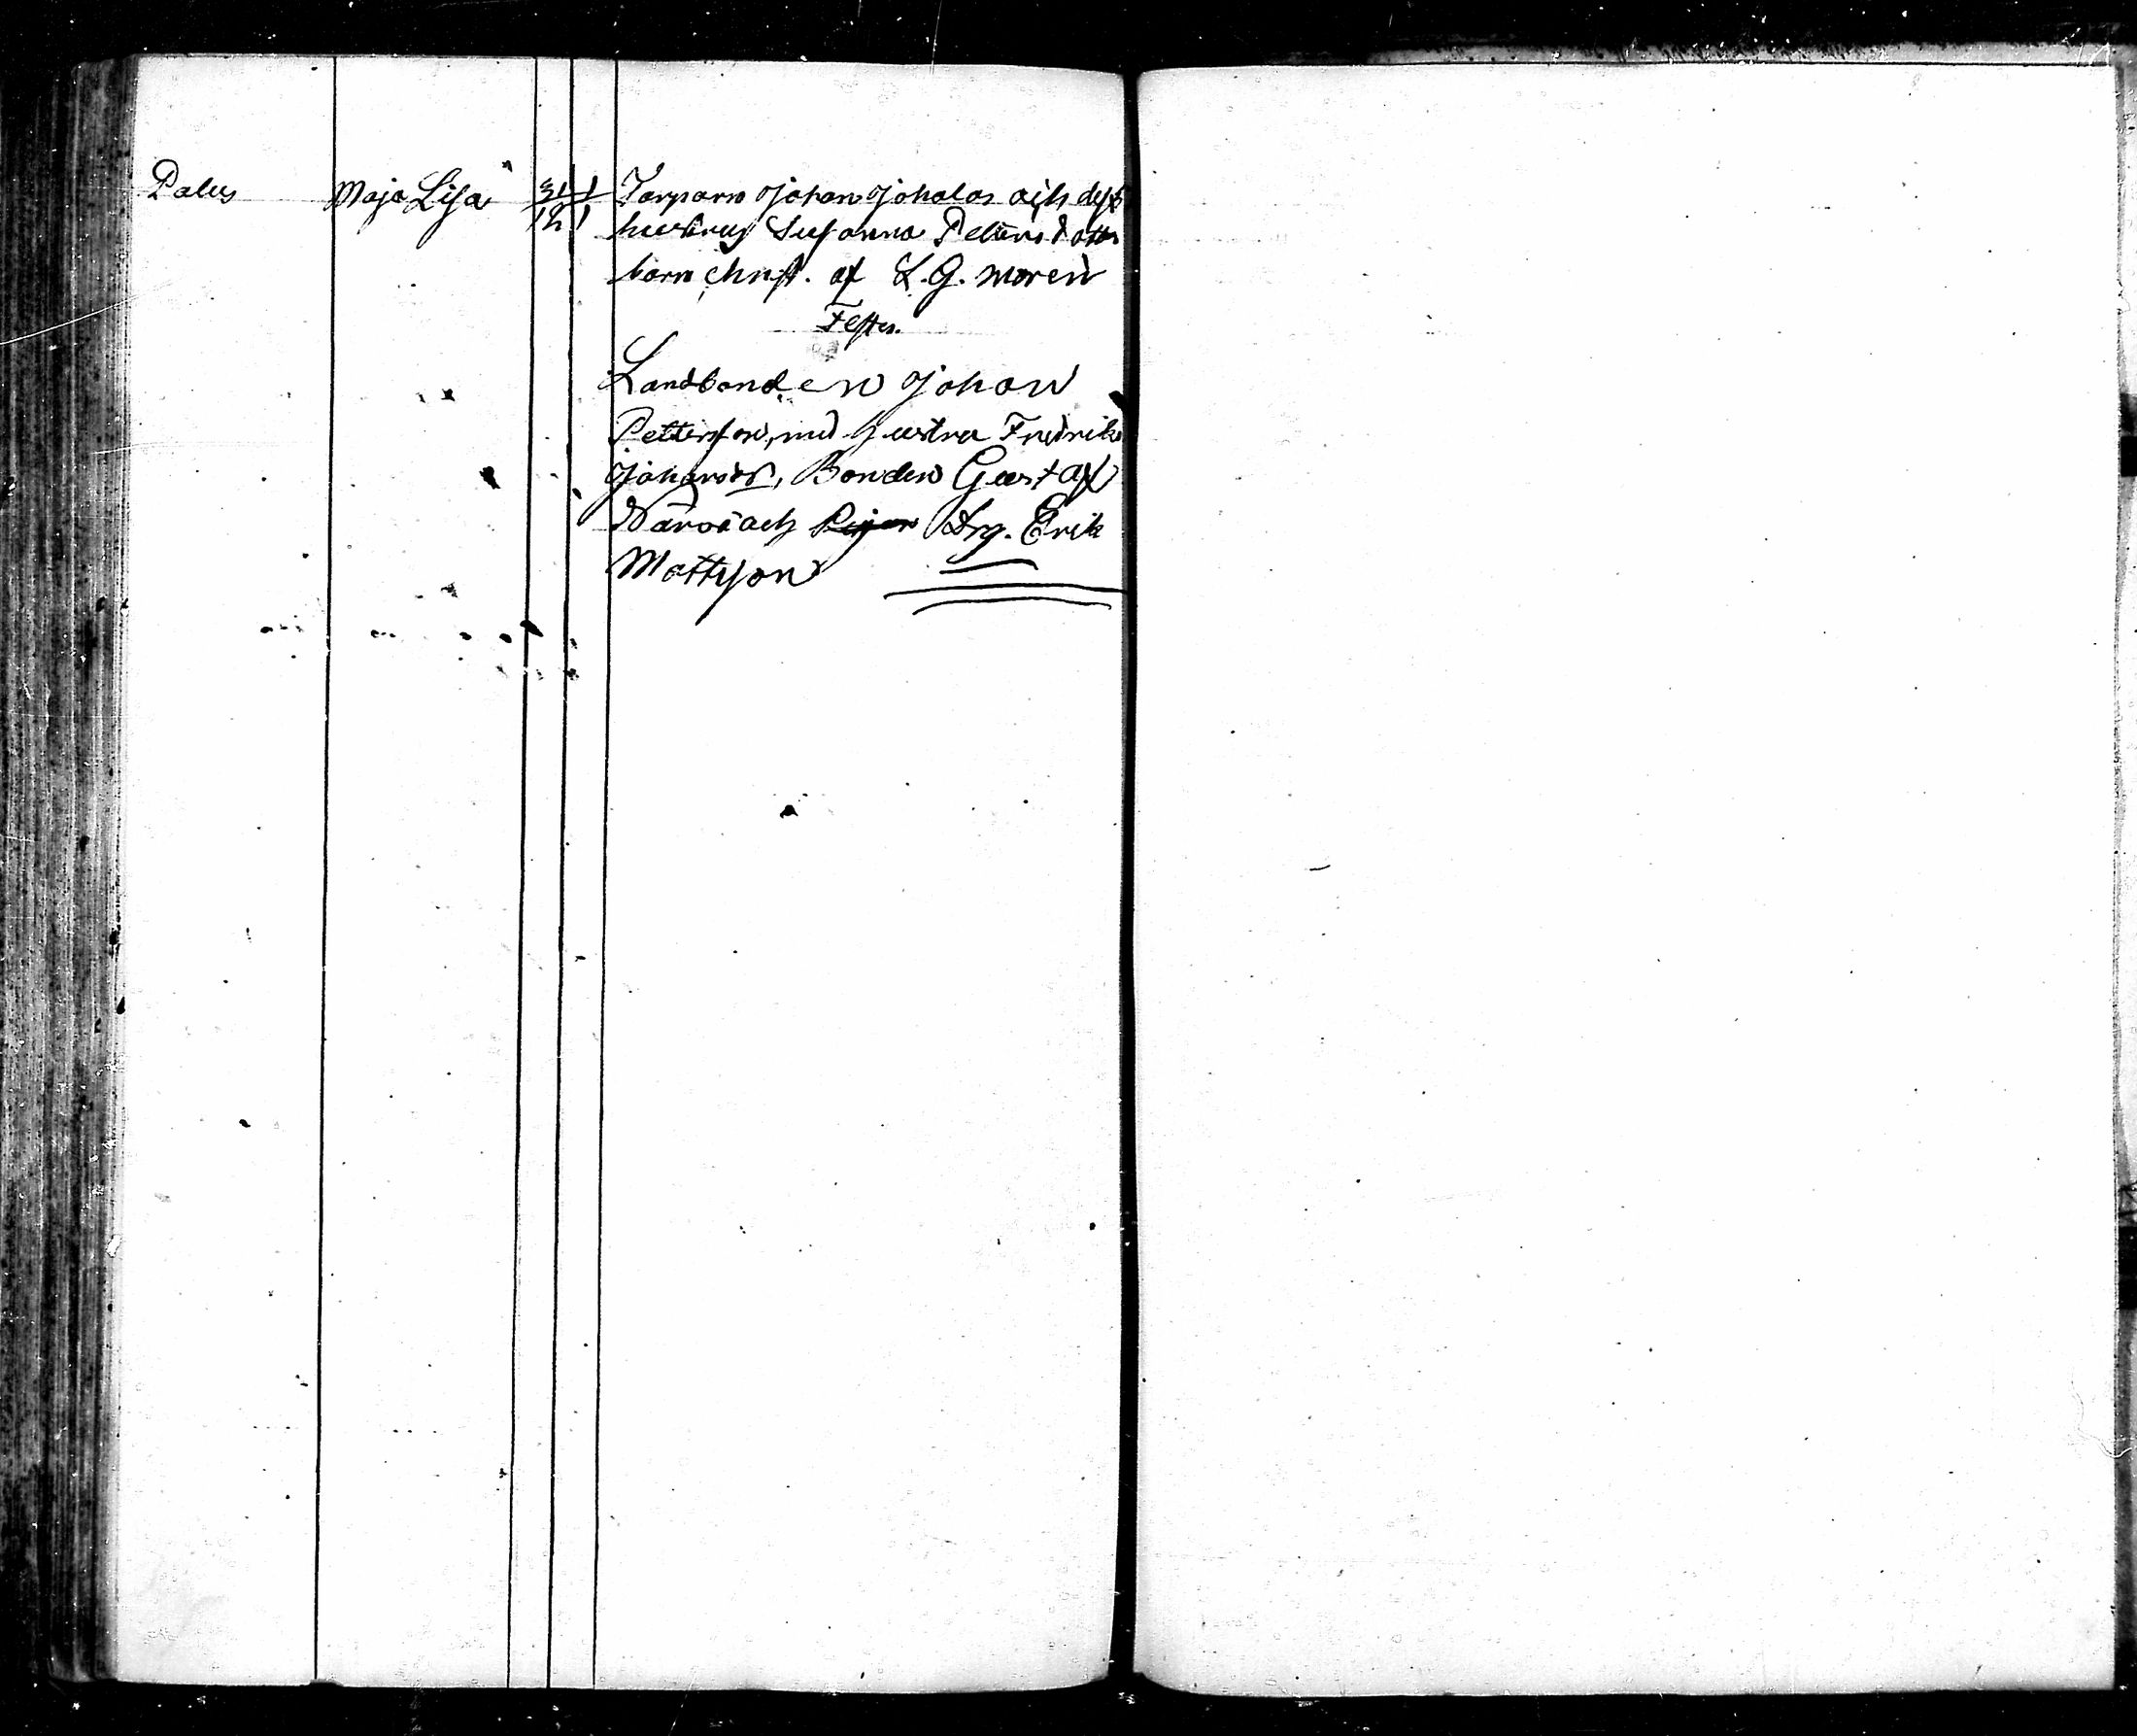 Palus Maja Lisa 31/12 1/1 Torparn Johan Johalas och dess
hustrus Susanna Petersdotters
barn christ. af L. G. Moren
Test.
Landbonden Johan
Pettersson, med hustru Fredrika
Johansdr, Bonden Gustaf
och Drg. Erik
Mattsson